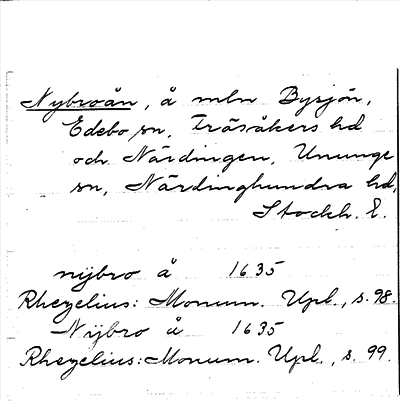 Nybroån, å mln Bysjön,
Edebo sn, Fräsåkers hd
och Närdingen, Ununge
sn, Närdinghundra hd,
Stockh. l.
nijbro å 1635
Rhezelius: Monum. Upl., s. 98.
Nijbro å 1635
Rhezelius: Monum. Upl., s. 99.